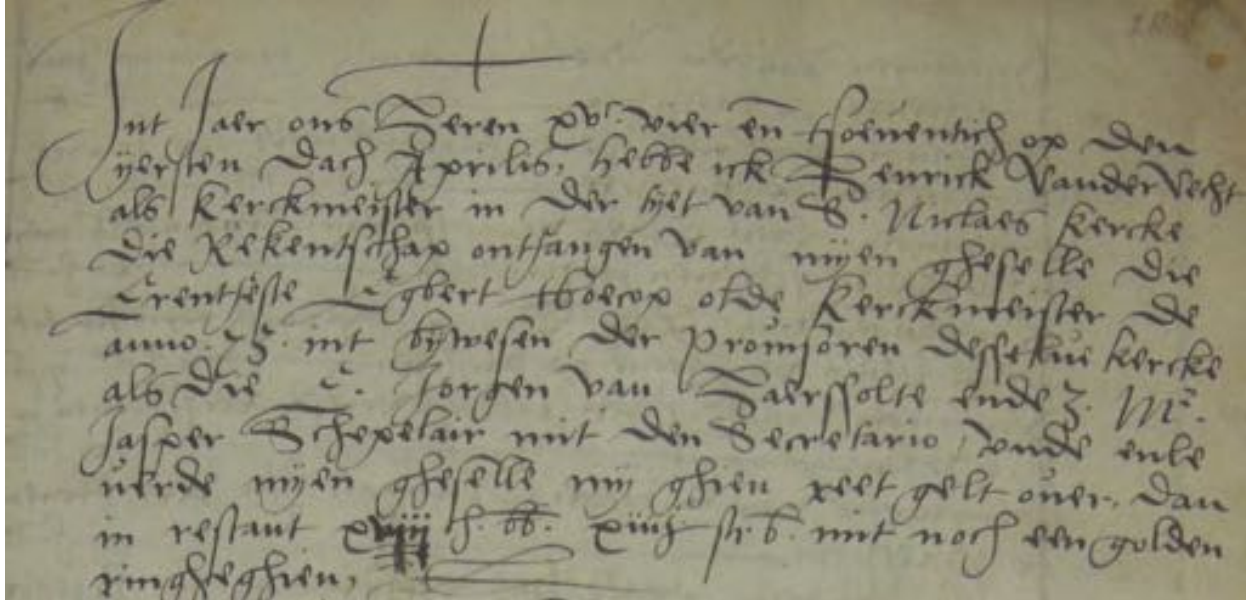 Int Jaer ons Heren xvc vier en tsoeventich op den
yersten dach Aprilis, hebbe ick Henrick Vander Vecht
als kerckmeister in der tyt van S. Niclaes kercke
die Rekentschap ontfangen van mijen gheselle die
Erentfeste Egbert tboecop olde kerckmeister de
anno. 73. int bywesen der provisoren desselue kercke
als die E. Jorgen van Haerssolte ende Mr.
Jasper Schepelair mit den Secretario, unde
uerde mijen gheselle my ghien reet gelt ouer, dan
in restant mit noch een golden